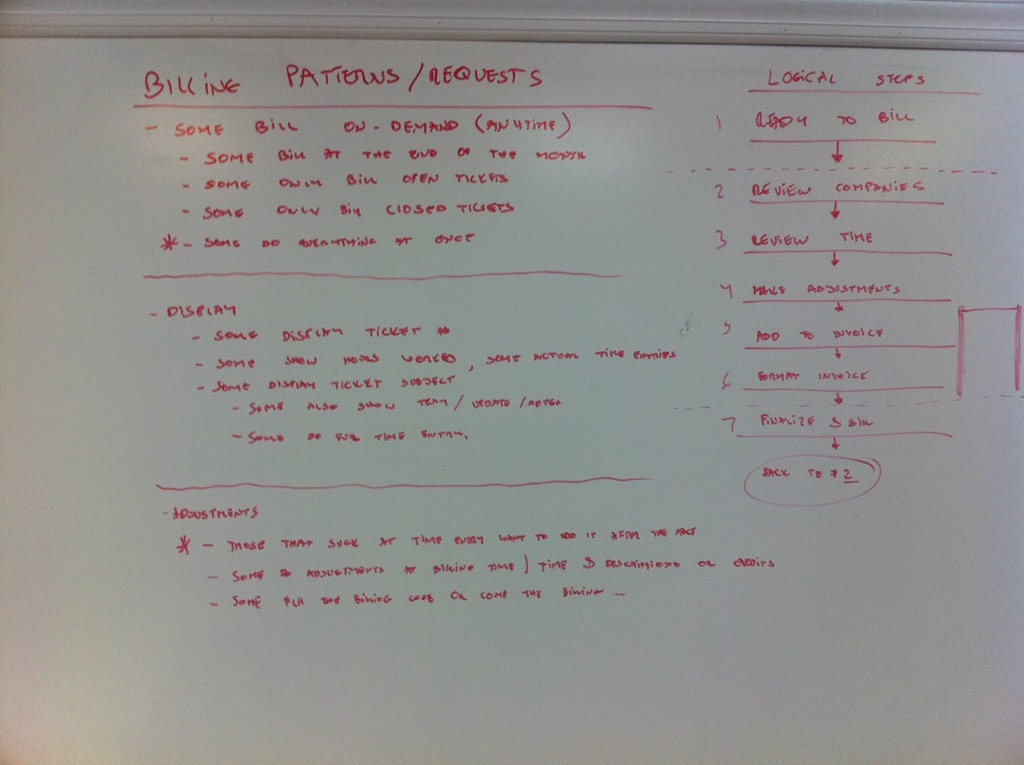 BILLING PATTERNS/REQUESTS
- SOME BILL ON-DEMAND (ANYTIME)
- SOME BILL AT THE END OF THE MONTH
- SOME ONLY BILL OPEN TICKETS
- SOME ONLY BILL CLOSED TICKETS
* - SOME DO EVERYTHING AT ONCE
- DISPLAY
- SOME DISPLAY TICKET #
- SOME SHOW HOURS WORKED, SOME ACTUAL TIME ENTRIES
- SOME DISPLAY TICKET SUBJECT
- SOME ALSO SHOW TECH/UPDATE/NOTES
- SOME DO FULL TIME ENTRY.
- ADJUSTMENTS
* - THOSE THAT SUCK AT TIME ENTRY WANT TO DO IT AFTER THE FACT
- SOME DO ADJUSTMENTS AT BILLING TIME) TIME & DESCRIPTIONS OR CREDITS
- SOME BILLING CODE OR COMP THE BILLING ...
LOGICAL STEPS
1 READY TO BILL
2 REVIEW COMPANIES
3 REVIEW TIME
4 MAKE ADJUSTMENTS
5 ADD TO INVOICE
6 FORMAT INVOICE
7 FINALIZE & BILL
BACK TO # 2